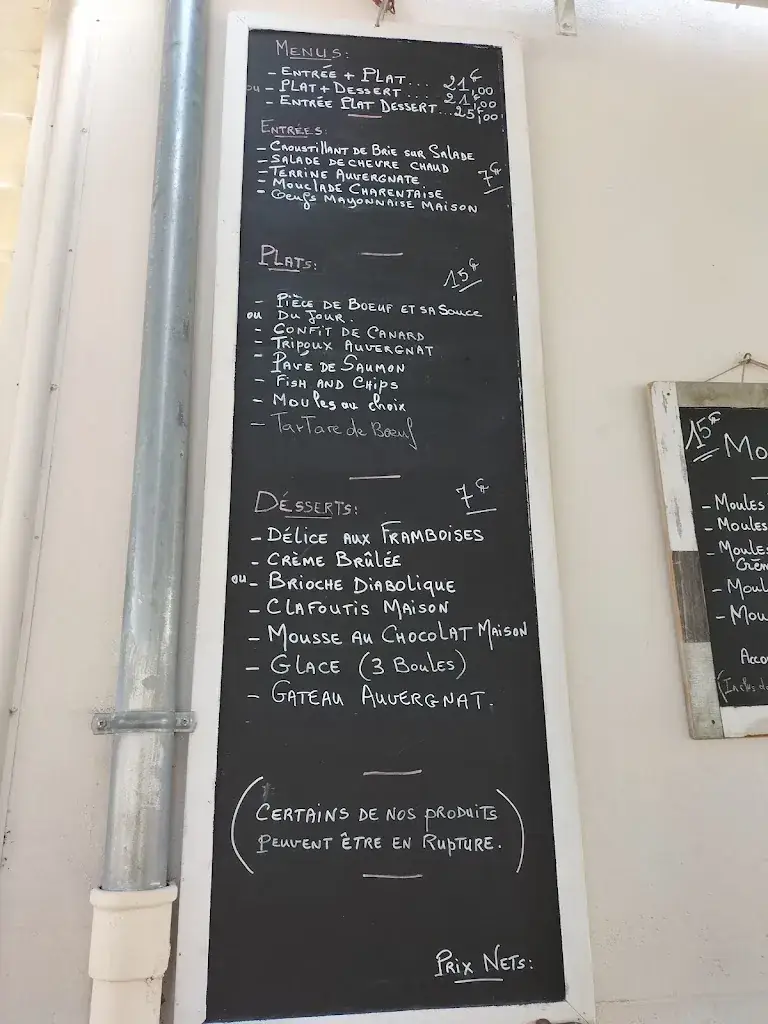 MENUS:
- ENTRÉE + PLAT... 21€,00
ou - PLAT + DESSERT... 21€,00
- ENTRÉE PLAT DESSERT... 25€,00
ENTRÉES:
- CROUSTILLANT DE BRIE SUR SALADE
- SALADE DE CHEVRE CHAUD
7€
- TERRINE AUVERGNATE
- MOUCLADE CHARENTAISE
- Oeufs MAYONNAISE MAISON
PLATS:
15€
- PIÈCE DE BOEUF ET SA SAUCE
ou DU JOUR.
- CONFIT DE CANARD
- TRIPOUX AUVERGNAT
- PAVÉ DE SAUMON
- FISH AND CHIPS
- Moules au choix
- TarTare de Boeuf
DÉSSERTS:
7€
- DÉLICE AUX FRAMBOISES
- CRÈME BRÛLÉE
ou - BRIOCHE DIABOLIQUE
- CLAFOUTIS MAISON
- MOUSSE AU CHOCOLAT MAISON
- GLACE (3 BOULES)
- GATEAU AUVERGNAT.
(CERTAINS DE NOS PRODUITS
PEUVENT ÊTRE EN RUPTURE.)
PRIX NETS:
15€
- Moules
- Moules
- Moules